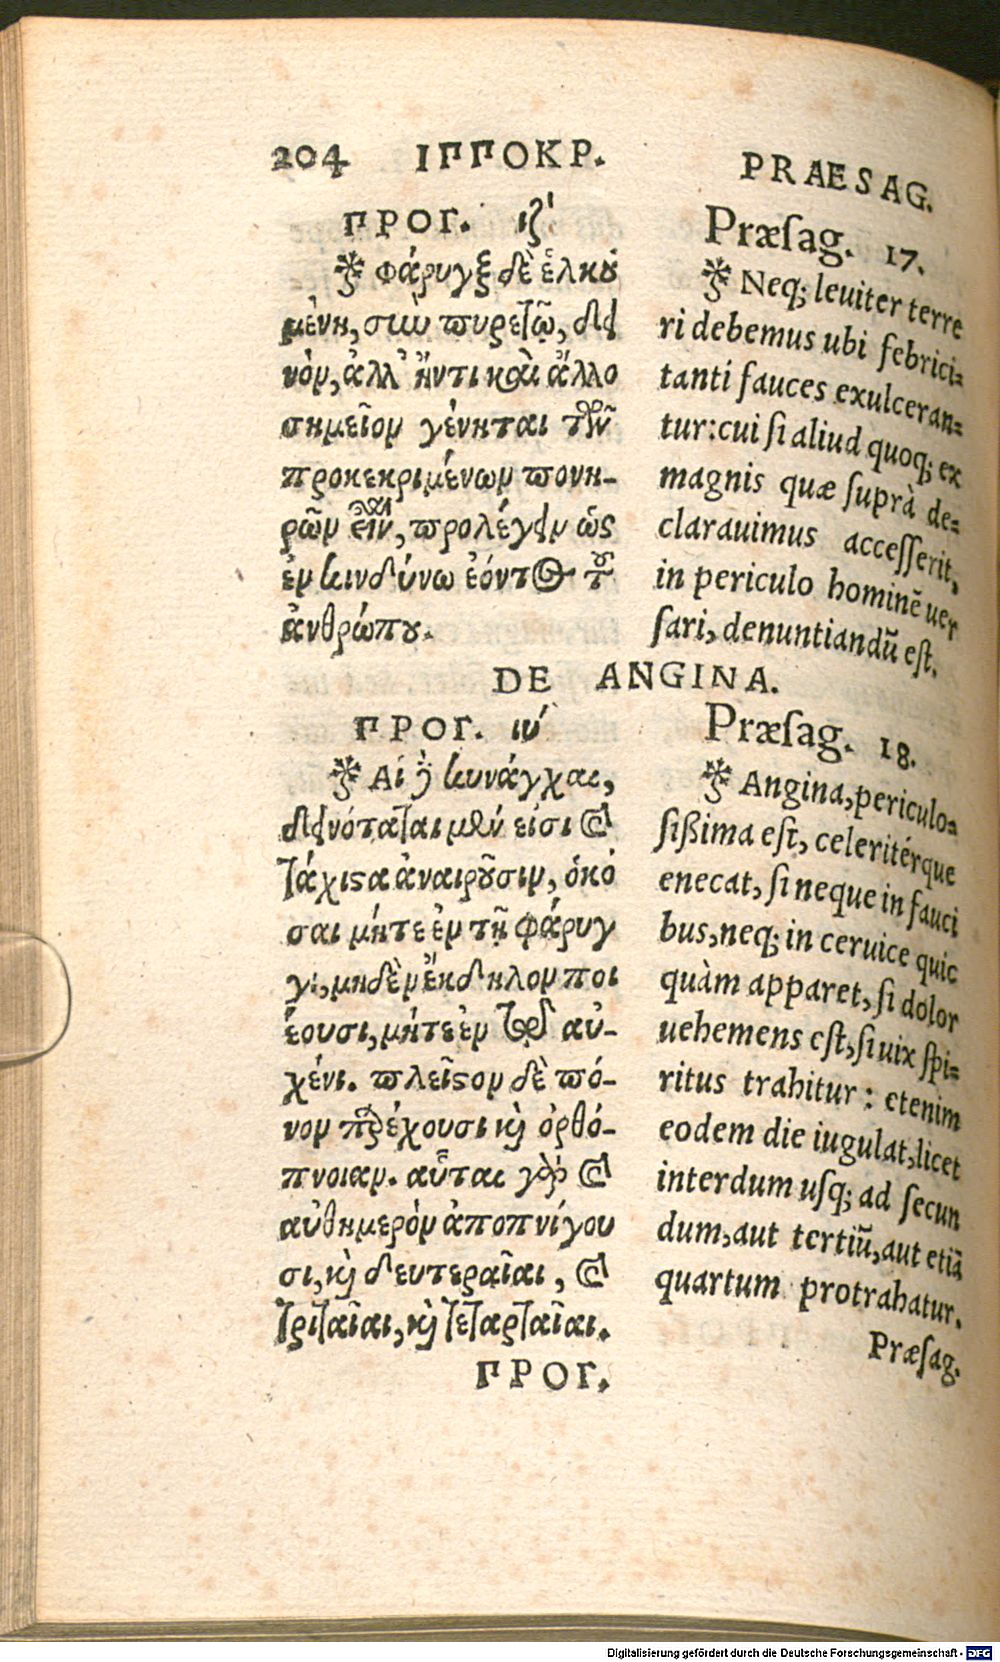 204 ΙΠΠΟΚΡ. PRAESAG.
ΠΡΟΓ. ιζ'
※ Φάρυγξ δὲ ἑλκου
μένη, σὺν πυρετῷ, δει
νόν, ἀλλ' ἤντι καὶ ἄλλο
σημεῖον γένηται τῶν
προκεκριμένων πονη-
ρῶν εἶναι, προλέγειν ὡς
ἐν κινδύνω ἐόντος τοῦ
ἀνθρώπου.
Præsag. 17.
※ Neq; leuiter terre
ri debemus ubi febrici-
tanti fauces exulceran-
tur: cui si aliud quoq; ex
magnis quæ suprà de-
clarauimus accesserit,
in periculo hominē uer
sari, denuntiandũ est.
DE ANGINA.
ΠΡΟΓ. ιή
※ Αἱ δὲ κυνάγχαι,
δεινόταται μέν εἰσι καὶ
τάχιστα ἀναιροῦσιν, ὁκό
σαι μήτε ἐν τῇ φάρυγ
γι, μηδὲν ἔκδηλον ποι
έουσι, μήτε ἐν τῷ αὐ-
χένι. πλεῖστον δὲ πό-
νον παρέχουσι καὶ ὀρθό-
πνοιαν. αὗται γὰρ καὶ
αὐθημερὸν ἀποπνίγου
σι, καὶ δευτεραῖαι, καὶ
τριταῖαι, καὶ τεταρταῖαι.
ΠΡΟΓ.
Præsag. 18.
※ Angina, periculo-
sißima est, celeritérque
enecat, si neque in fauci
bus, neq; in ceruice quic
quàm apparet, si dolor
uehemens est, si uix spi-
ritus trahitur: etenim
eodem die iugulat, licet
interdum usq; ad secun
dum, aut tertiũ, aut etiā
quartum protrahatur.
Præsag.
Digitalisierung gefördert durch die Deutsche Forschungsgemeinschaft - DFG